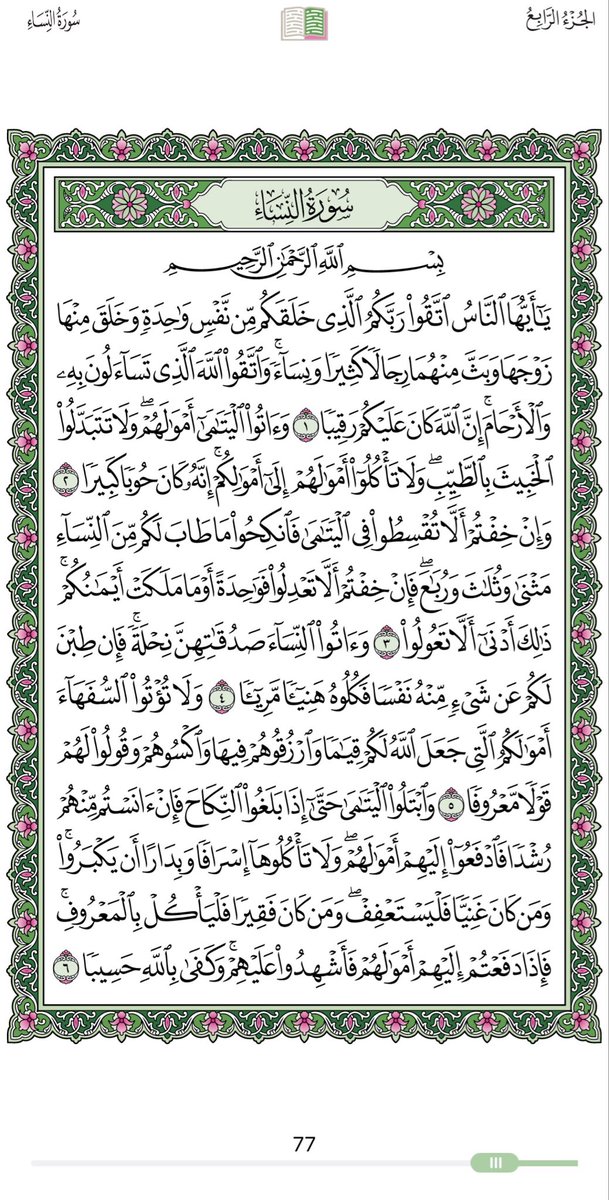 الجُزْءُ الرَّابِعُ
سُورَةُ النِّسَاءِ
سُورَةُ النِّسَاءِ
بِسۡمِ ٱللَّهِ ٱلرَّحۡمَٰنِ ٱلرَّحِيمِ
يَٰٓأَيُّهَا ٱلنَّاسُ ٱتَّقُواْ رَبَّكُمُ ٱلَّذِي خَلَقَكُم مِّن نَّفۡسٖ وَٰحِدَةٖ وَخَلَقَ مِنۡهَا
زَوۡجَهَا وَبَثَّ مِنۡهُمَا رِجَالٗا كَثِيرٗا وَنِسَآءٗۚ وَٱتَّقُواْ ٱللَّهَ ٱلَّذِي تَسَآءَلُونَ بِهِۦ
وَٱلۡأَرۡحَامَۚ إِنَّ ٱللَّهَ كَانَ عَلَيۡكُمۡ رَقِيبٗا ١ وَءَاتُواْ ٱلۡيَتَٰمَىٰٓ أَمۡوَٰلَهُمۡۖ وَلَا تَتَبَدَّلُواْ
ٱلۡخَبِيثَ بِٱلطَّيِّبِۖ وَلَا تَأۡكُلُوٓاْ أَمۡوَٰلَهُمۡ إِلَىٰٓ أَمۡوَٰلِكُمۡۚ إِنَّهُۥ كَانَ حُوبٗا كَبِيرٗا ٢
وَإِنۡ خِفۡتُمۡ أَلَّا تُقۡسِطُواْ فِي ٱلۡيَتَٰمَىٰ فَٱنكِحُواْ مَا طَابَ لَكُم مِّنَ ٱلنِّسَآءِ
مَثۡنَىٰ وَثُلَٰثَ وَرُبَٰعَۖ فَإِنۡ خِفۡتُمۡ أَلَّا تَعۡدِلُواْ فَوَٰحِدَةً أَوۡ مَا مَلَكَتۡ أَيۡمَٰنُكُمۡۚ
ذَٰلِكَ أَدۡنَىٰٓ أَلَّا تَعُولُواْ ٣ وَءَاتُواْ ٱلنِّسَآءَ صَدُقَٰتِهِنَّ نِحۡلَةٗۚ فَإِن طِبۡنَ
لَكُمۡ عَن شَيۡءٖ مِّنۡهُ نَفۡسٗا فَكُلُوهُ هَنِيٓـٔٗا مَّرِيٓـٔٗا ٤ وَلَا تُؤۡتُواْ ٱلسُّفَهَآءَ
أَمۡوَٰلَكُمُ ٱلَّتِي جَعَلَ ٱللَّهُ لَكُمۡ قِيَٰمٗا وَٱرۡزُقُوهُمۡ فِيهَا وَٱكۡسُوهُمۡ وَقُولُواْ لَهُمۡ
قَوۡلٗا مَّعۡرُوفٗا ٥ وَٱبۡتَلُواْ ٱلۡيَتَٰمَىٰ حَتَّىٰٓ إِذَا بَلَغُواْ ٱلنِّكَاحَ فَإِنۡ ءَانَسۡتُم مِّنۡهُمۡ
رُشۡدٗا فَٱدۡفَعُوٓاْ إِلَيۡهِمۡ أَمۡوَٰلَهُمۡۖ وَلَا تَأۡكُلُوهَآ إِسۡرَافٗا وَبِدَارًا أَن يَكۡبَرُواْۚ
وَمَن كَانَ غَنِيّٗا فَلۡيَسۡتَعۡفِفۡۖ وَمَن كَانَ فَقِيرٗا فَلۡيَأۡكُلۡ بِٱلۡمَعۡرُوفِۚ
فَإِذَا دَفَعۡتُمۡ إِلَيۡهِمۡ أَمۡوَٰلَهُمۡ فَأَشۡهِدُواْ عَلَيۡهِمۡۚ وَكَفَىٰ بِٱللَّهِ حَسِيبٗا ٦
77